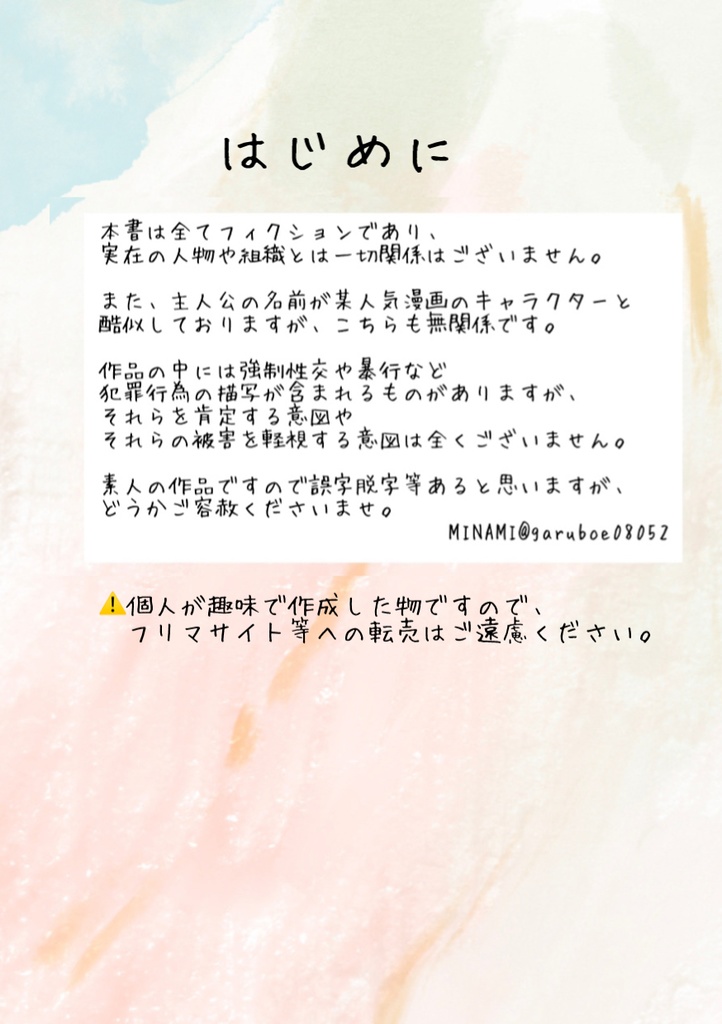 はじめに
本書は全てフィクションであり、
実在の人物や組織とは一切関係はございません。
また、主人公の名前が某人気漫画のキャラクターと
酷似しておりますが、こちらも無関係です。
作品の中には強制性交や暴行など
犯罪行為の描写が含まれるものがありますが、
それらを肯定する意図や
それらの被害を軽視する意図は全くございません。
素人の作品ですので誤字脱字等あると思いますが、
どうかご容赦くださいませ。
MINAMI@garuboe08052
⚠️個人が趣味で作成した物ですので、
フリマサイト等への転売はご遠慮ください。